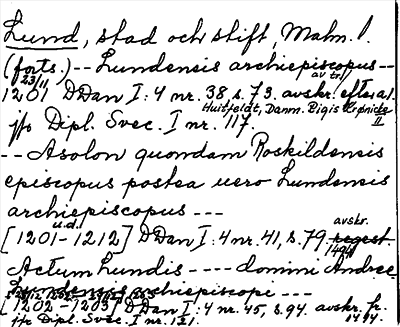 Lund, stad och stift, Malm. l.
(forts.) -- Lundensis archiepiscopus --
23/11 av tr. i
1201 DDan I:4 nr. 38, s. 73. avskr. efter al.
Huitfeldt, Danm. Rigis Krønicke II
jfr Dipl. Svec. I nr. 117.
-- Asolon quondam Roskildensis
episcopus postea uero Lundensis
archiepiscopus ---
u.d. avskr.
[1201-1212] DDan I:4 nr. 41, s. 79 regest
1494
Actum Lundis ---- domini Andree
Lundensis archiepiscopi ---
[1202-1203] DDan I:4 nr. 45, s. 94. avskr. fr.
jfr Dipl. Svec. I nr. 121. 1494.